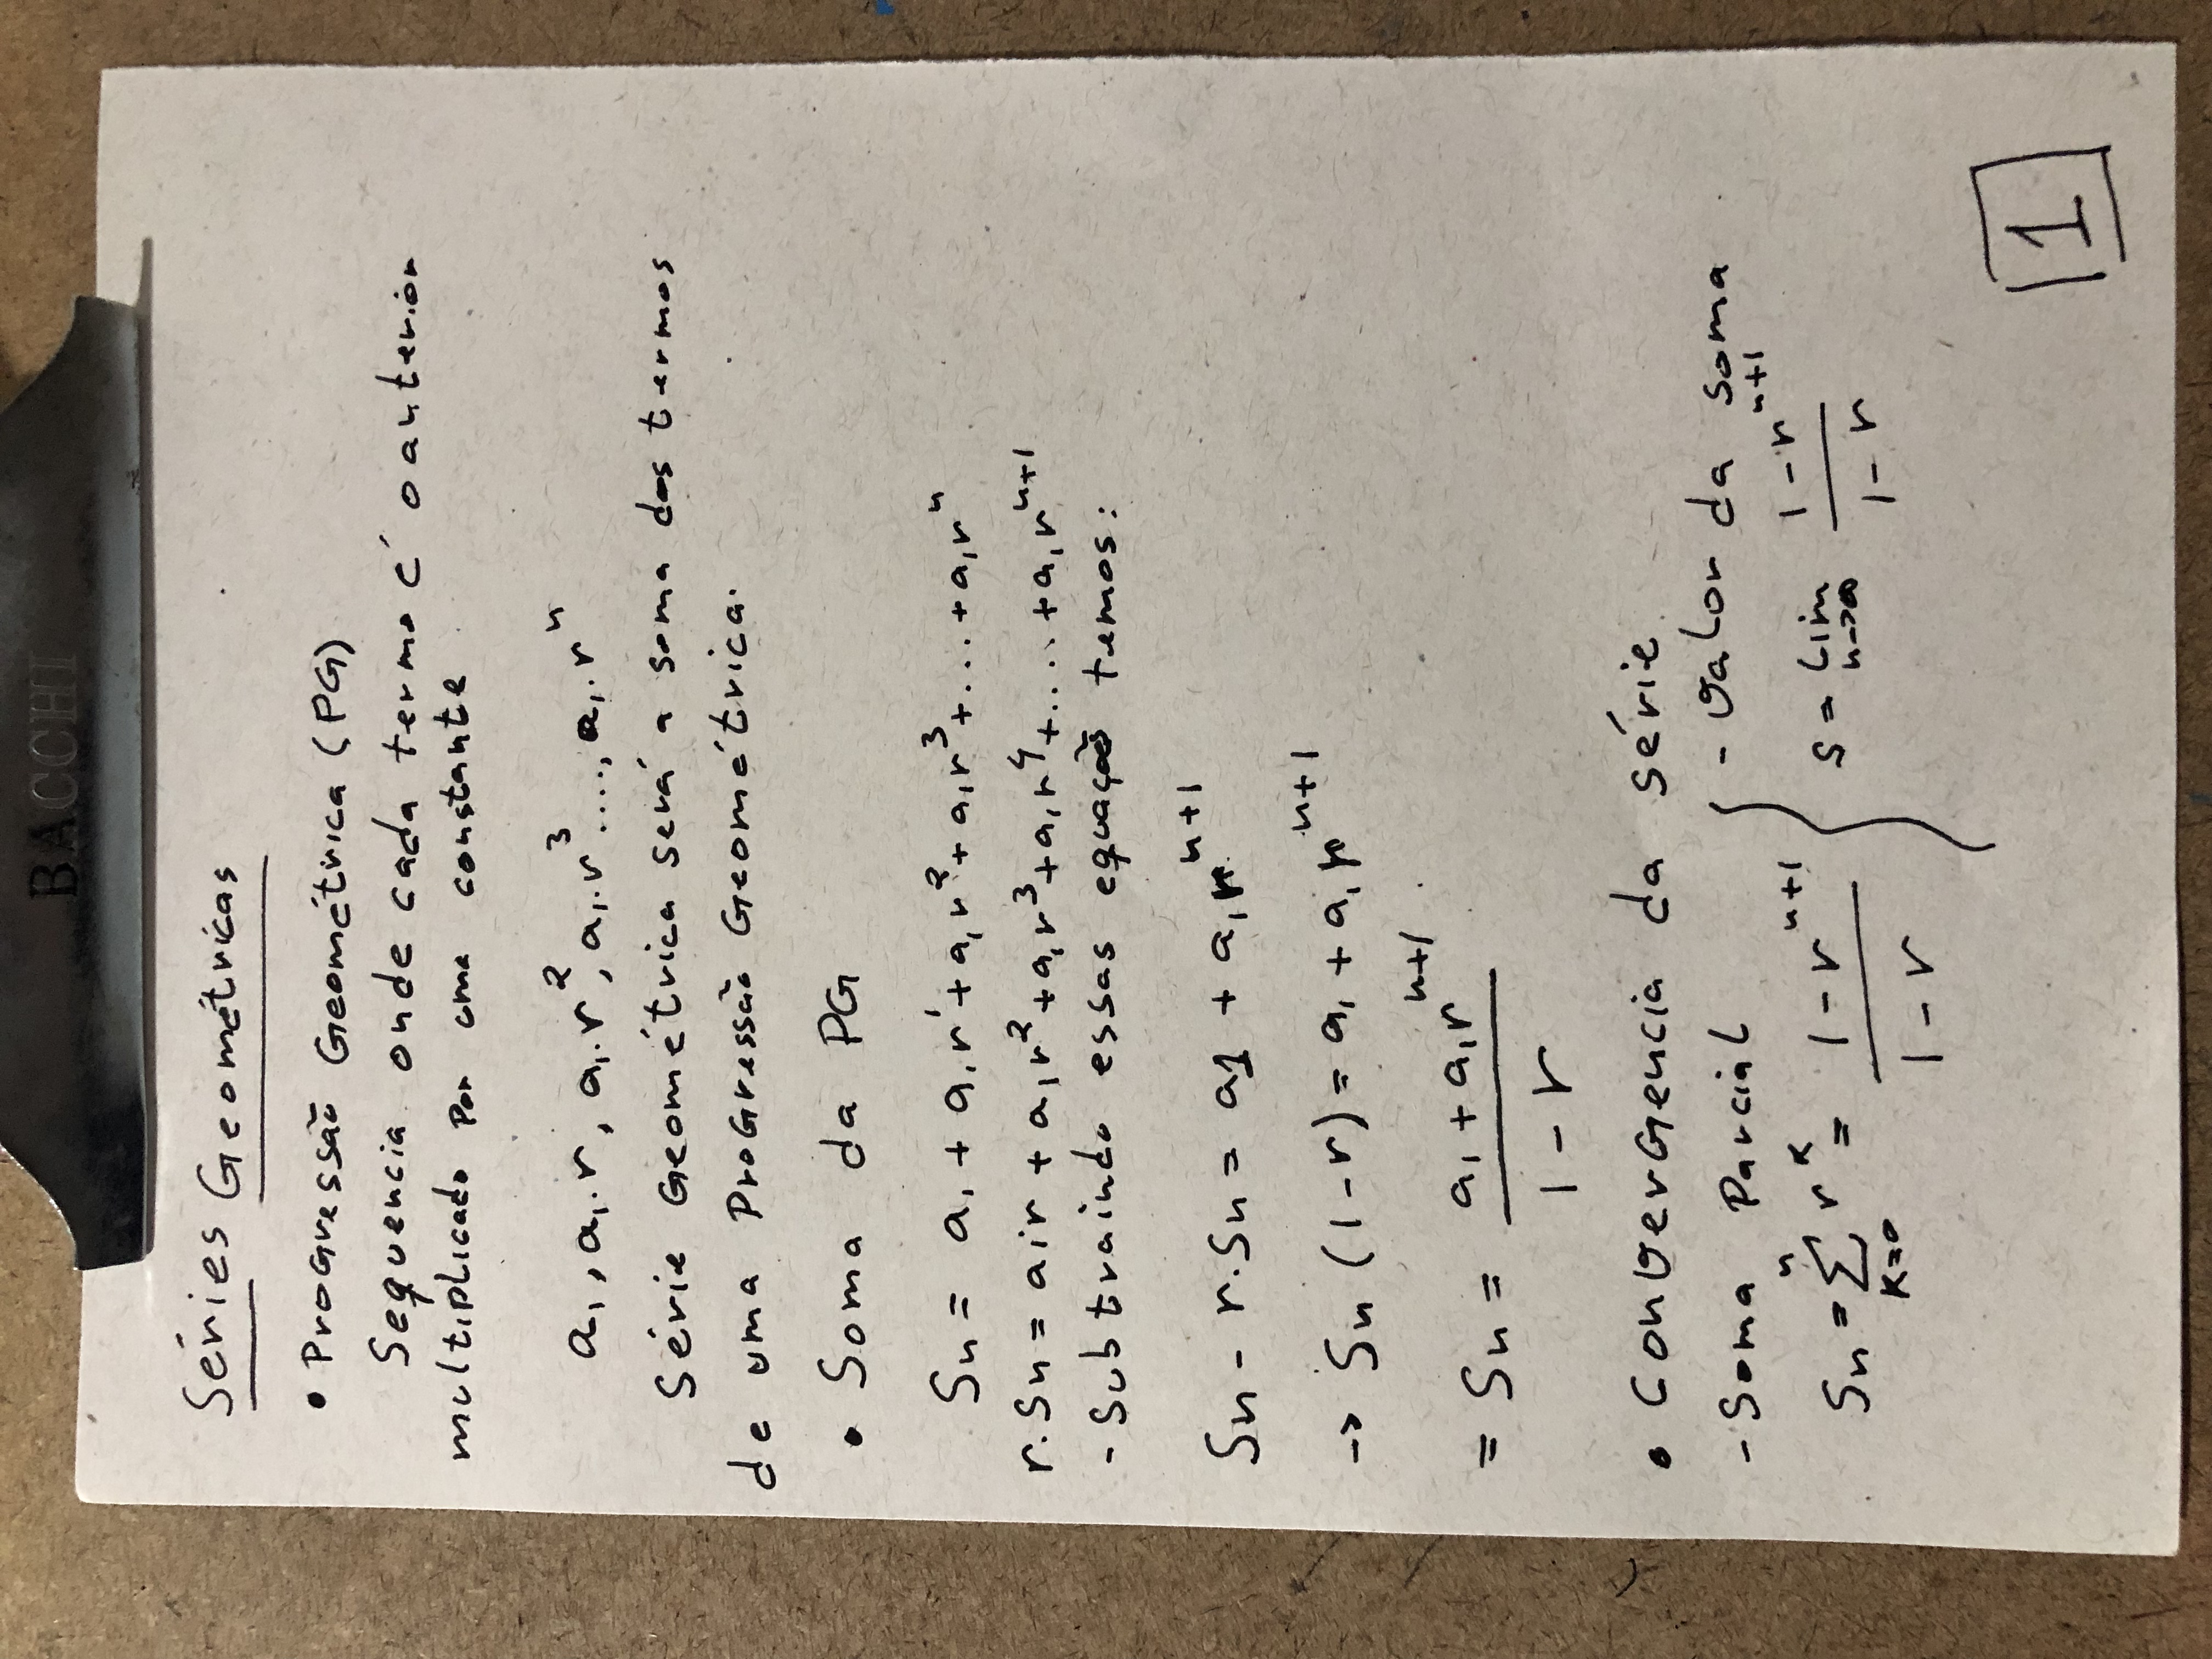 BACCHI
Séries Geométricas
• Progressão Geométrica (PG)
Sequencia onde cada termo é o anterior
multiplicado por uma constante
a₁, a₁.r, a₁.r², a₁.r³...., a₁.rⁿ
Série Geométrica será a soma dos termos
de uma Progressão Geométrica.
• Soma da PG
Sn = a₁ + a₁r¹ + a₁r² + a₁r³ + ... + a₁rⁿ
r.Sn = a₁r + a₁r² + a₁r³ + a₁r⁴ + .... + a₁rⁿ⁺¹
- Subtraindo essas equações temos:
Sn - r.Sn = a1 + a₁rⁿ⁺¹
-> Sn (1-r) = a₁ + a₁rⁿ⁺¹
= Sn = (a₁ + a₁rⁿ⁺¹) / (1 - r)
• Convergencia da série
- Soma Parcial
Sn = Σ_{K=0}^{n} r^K = (1 - rⁿ⁺¹) / (1 - r)
- Valor da soma
s = Lim_{n->∞} (1 - rⁿ⁺¹) / (1 - r)
1